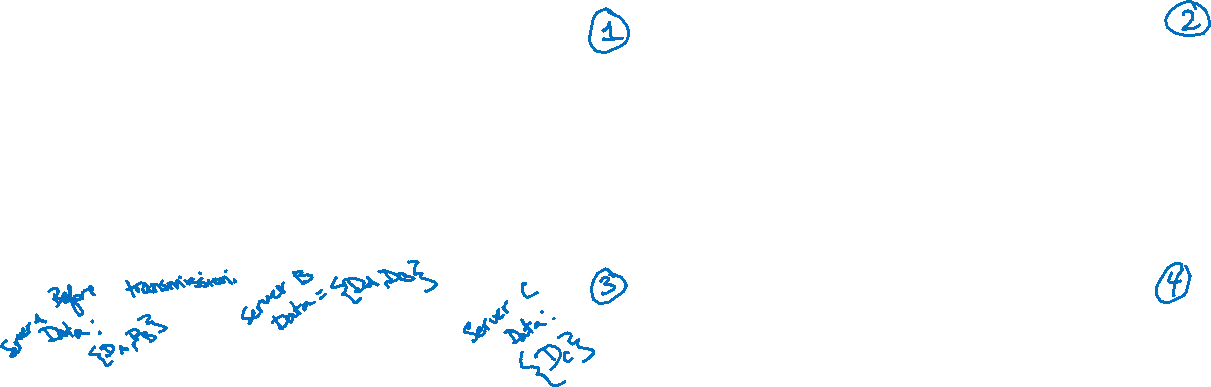 1
2
Before transmission.
Server A
Data:
{DA, DB}
Server B
Data = {DA, DB}
Server C
Data:
{DC}
3
4